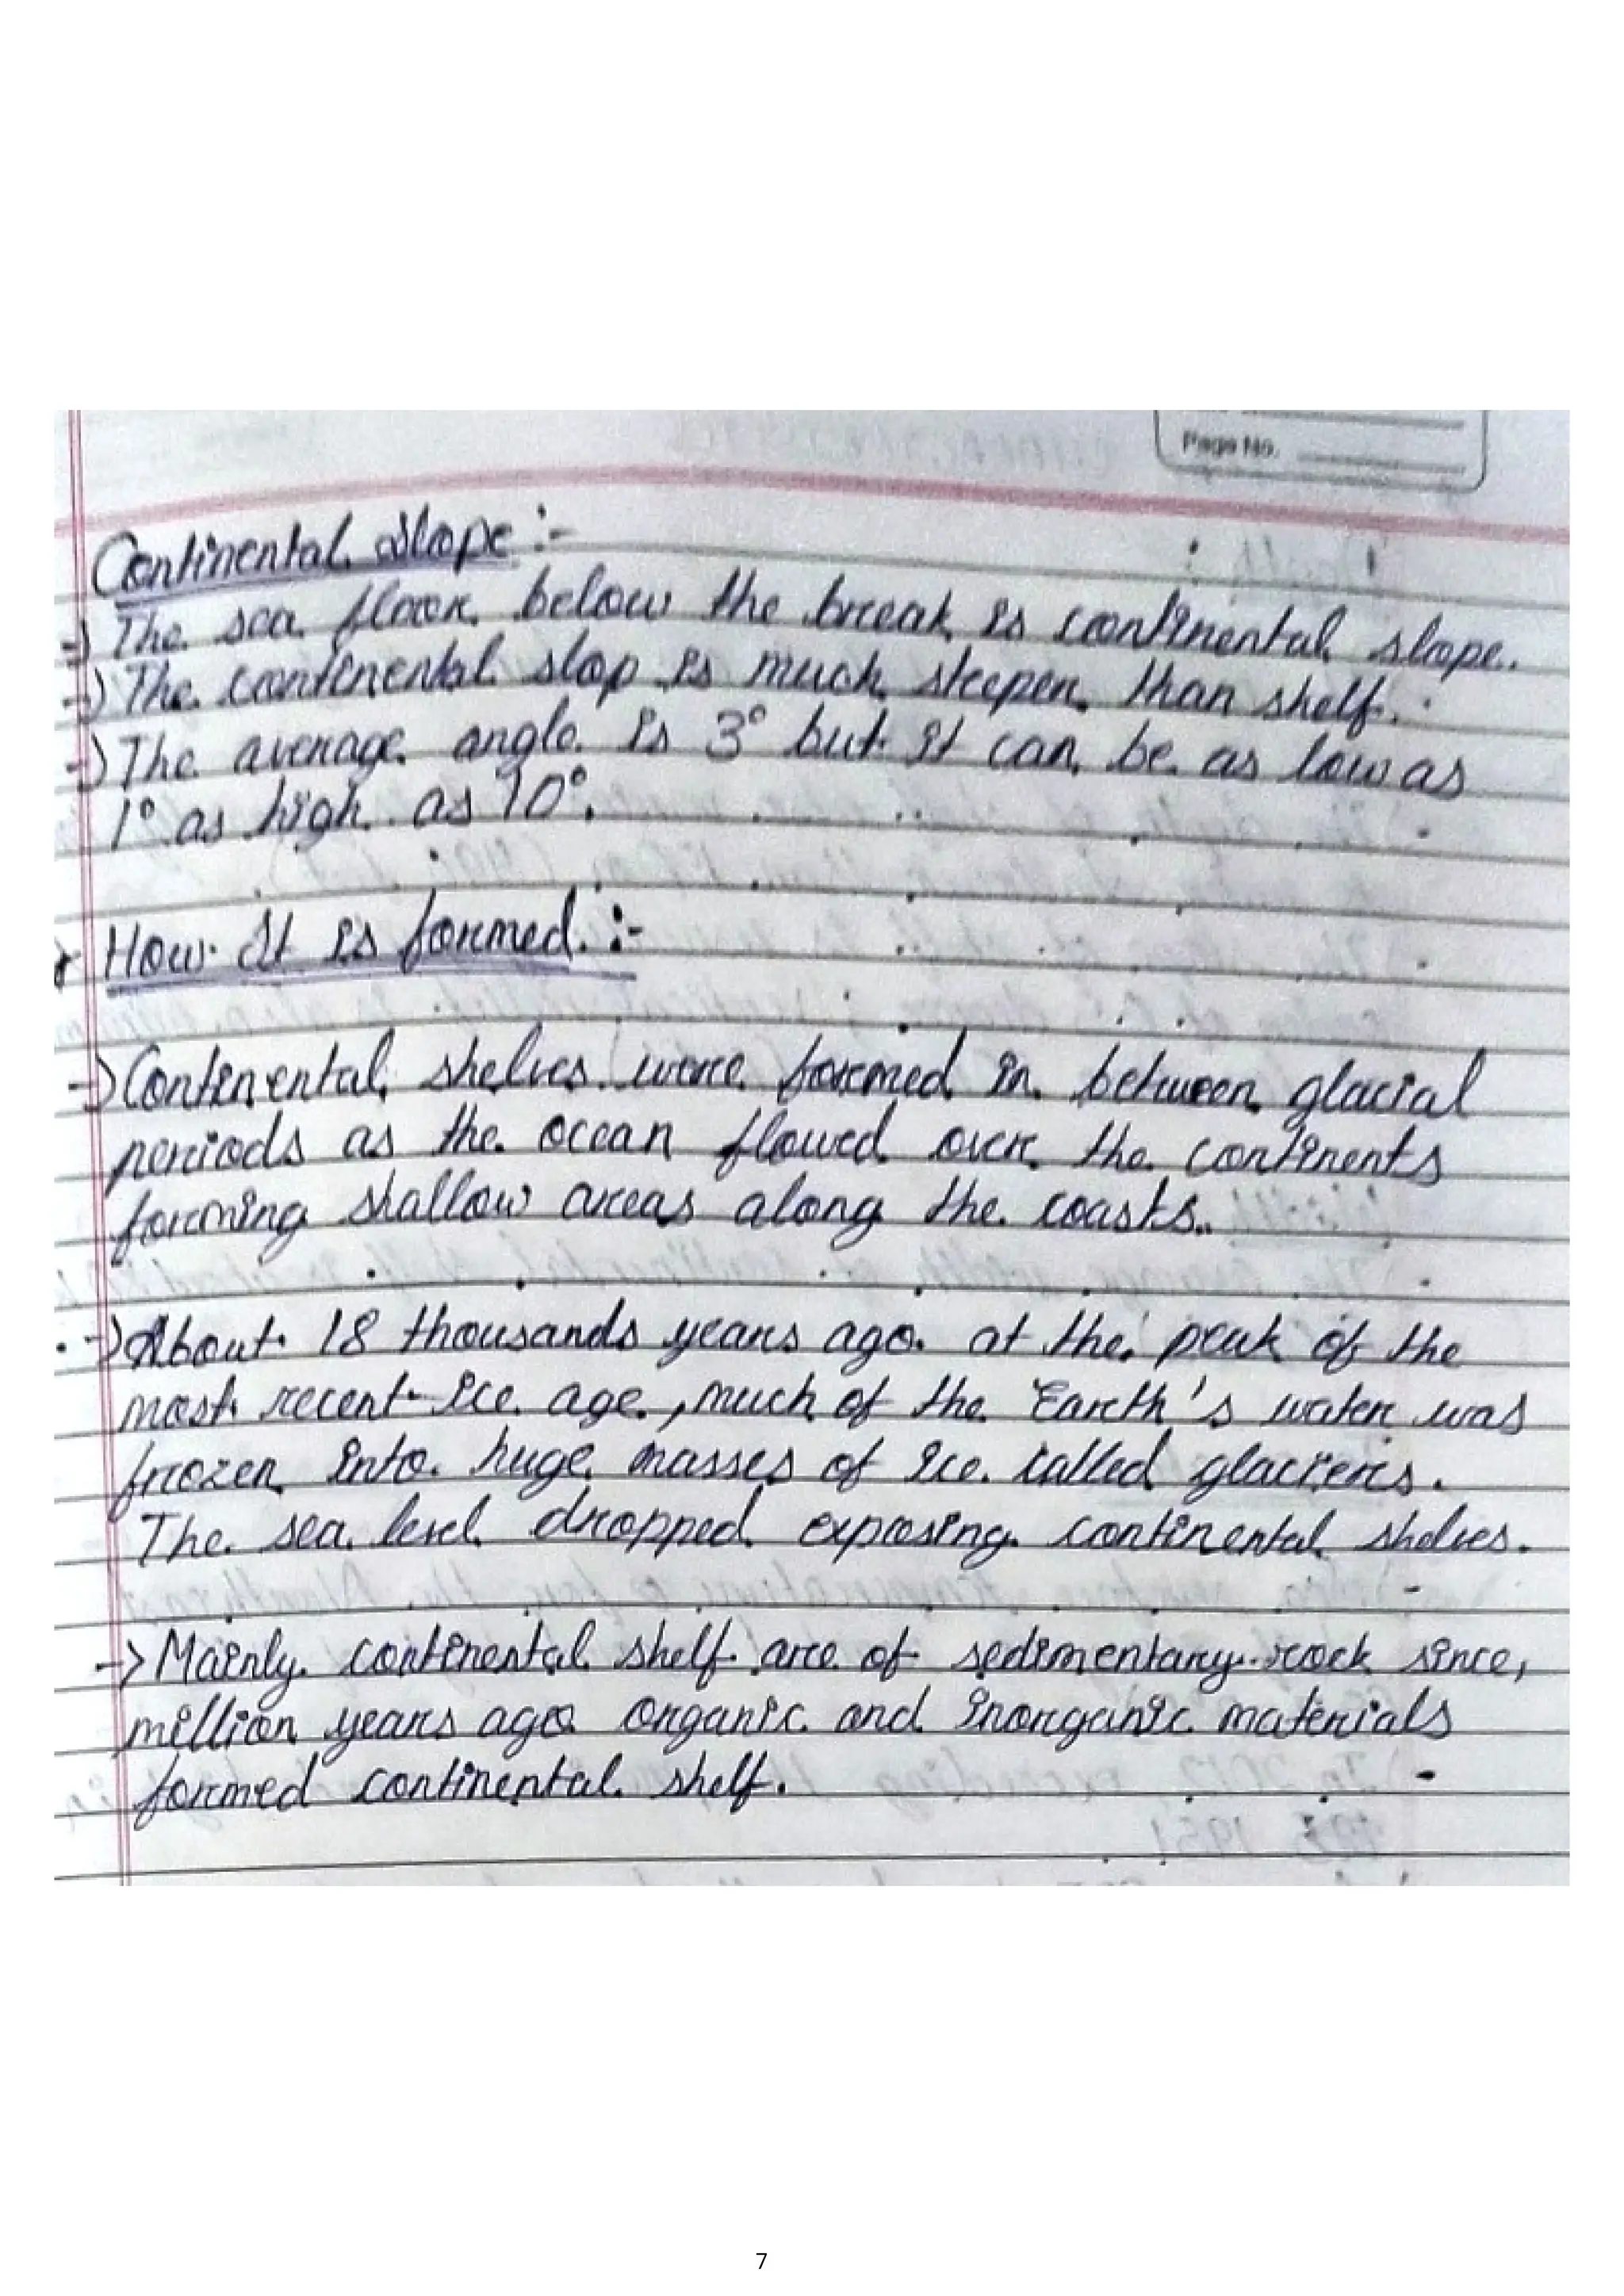 Page No.
Continental Slope :-
-) The sea floor below the break is continental slope.
-) The continental slop is much steeper than shelf.
-) The average angle is 3° but it can be as low as
1° as high as 10°.
How It is formed :-
-) Continental shelves were formed in between glacial
periods as the ocean flowed over the continents
forming shallow areas along the coasts.
-) About 18 thousands years ago at the peak of the
most recent ice age, much of the Earth's water was
frozen into huge masses of ice called glaciers.
The sea level dropped exposing continental shelves.
-> Mainly continental shelf are of sedimentary rock since,
million years ago organic and inorganic materials
formed continental shelf.
7